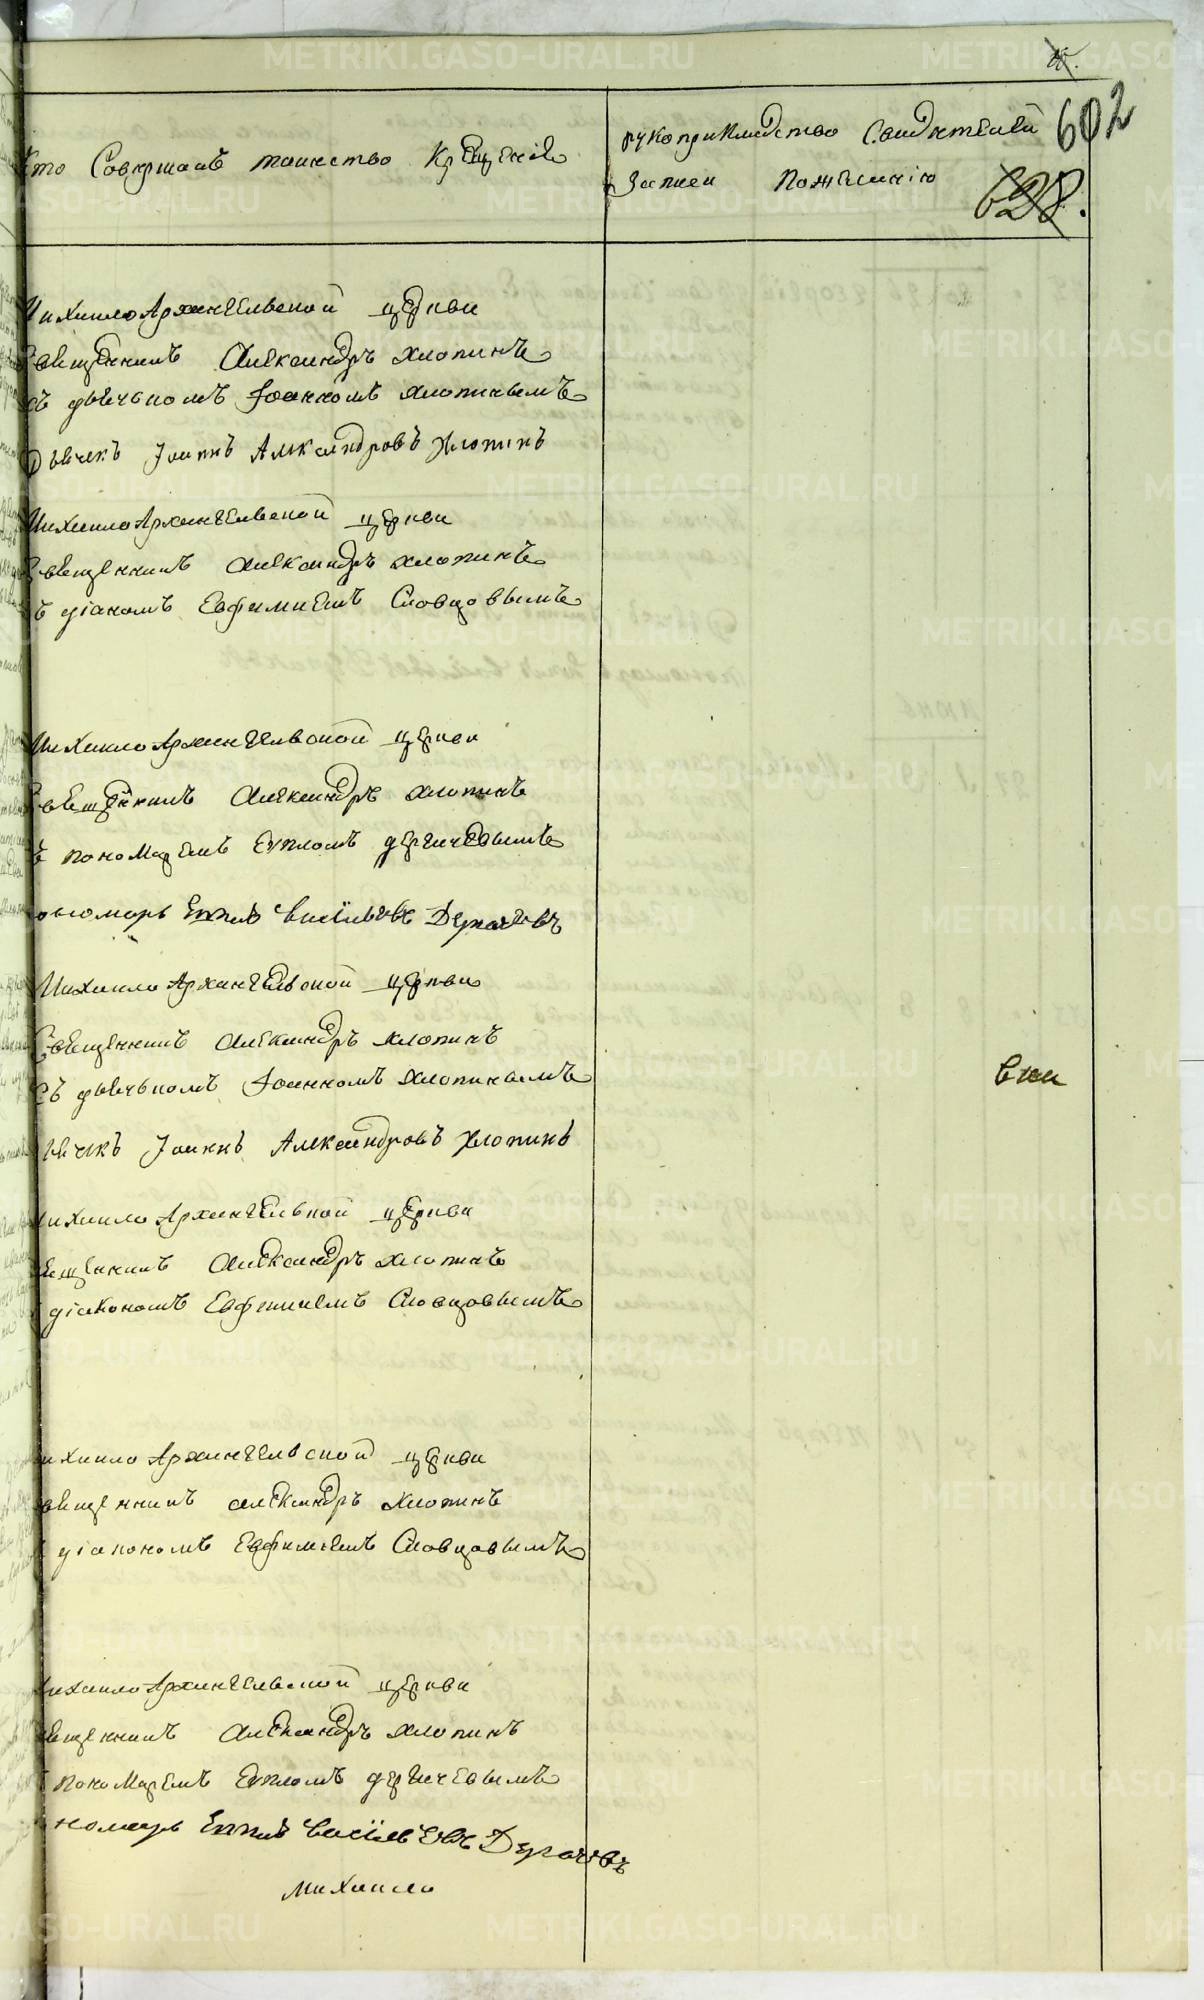 602
628.
Кто Совершалъ таинство Крещенія
рукоприкладство Свидѣтелей
Записи по желанію
Михаило Архангельской церкви
Священникъ Александръ Хлопинъ
съ дьячкомъ Іоанномъ Хлопинымъ
Дьячекъ Іоаннъ Александровъ Хлопинъ
Михаило Архангельской церкви
Священникъ Александръ Хлопинъ
съ діакономъ Евфимиемъ Словцовымъ
Михаило Архангельской церкви
Священникъ Александръ Хлопинъ
съ пономаремъ Евпломъ дерячевымъ
пономарь Евпла Васильевъ Дерячевъ
Михаило Архангельской церкви
Священникъ Александръ Хлопинъ
Съ дьячкомъ Іоанномъ Хлопинымъ
дьячекъ Іоаннъ Александровъ Хлопинъ
Михаило Архангельской церкви
священникъ Александръ Хлопинъ
діакономъ Евфимиемъ Словцовымъ
Михаило Архангельской церкви
священникъ Александръ Хлопинъ
діакономъ Евфимиемъ Словцовымъ
Михаило Архангельской церкви
священникъ Александръ Хлопинъ
пономаремъ Евпломъ дерячевымъ
пономарь Евпла Васильевъ Дерячевъ
Михаила
METRIKI.GASO-URAL.RU